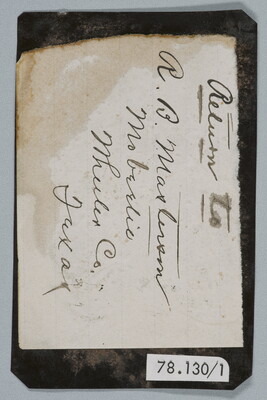 Return to
R. B. Masterson
Mobeetie
Wheeler Co.
Texas
78.130/1